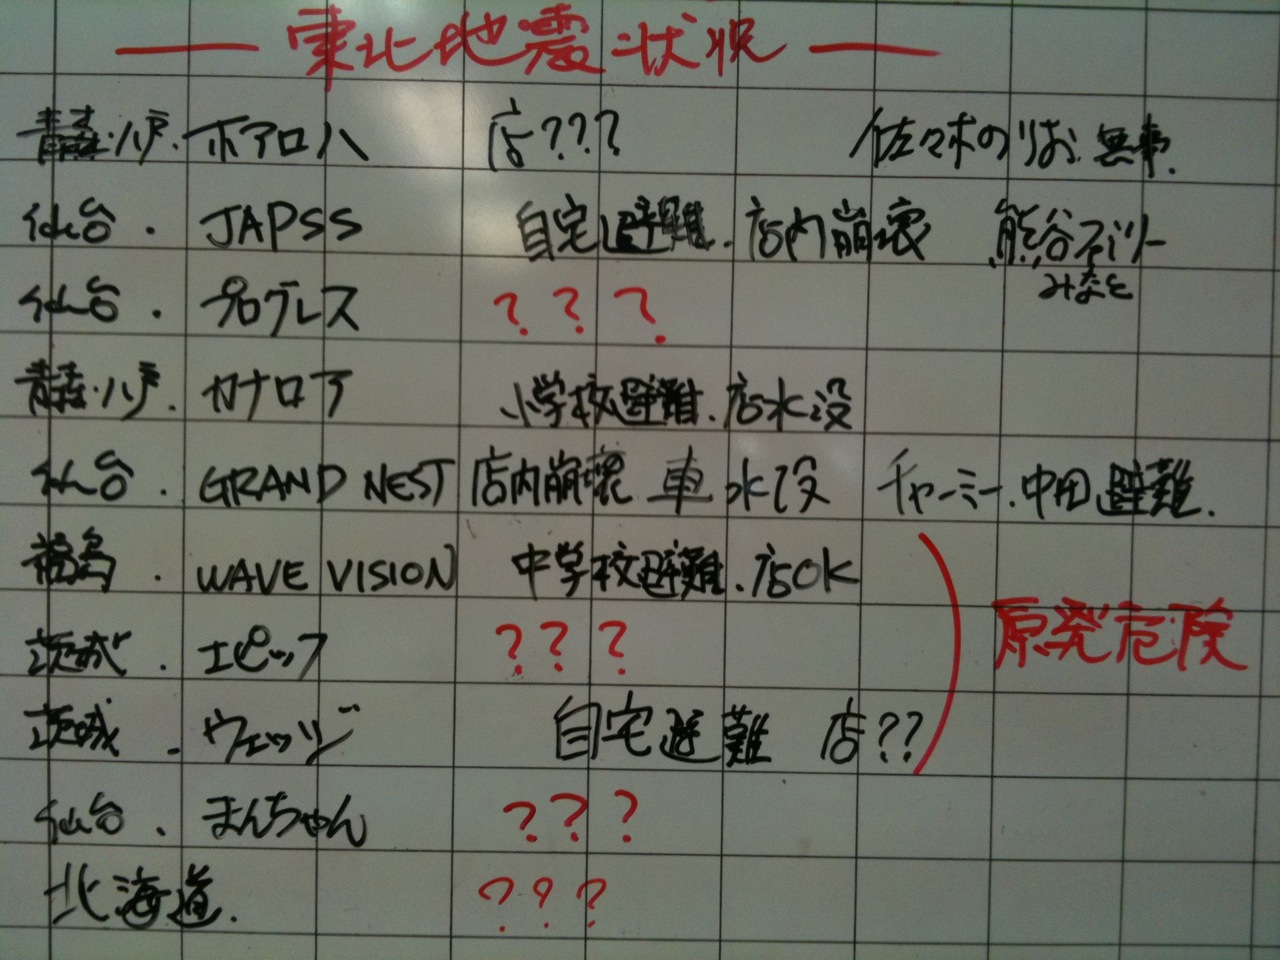 東北地震状況
青森・八戸. ホアロハ 店??? 佐々木のりお 無事.
仙台. JAPSS 自宅避難. 店内崩壊 熊谷ファミリー
みなと
仙台. プログレス ???
青森・八戸. カナロア 小学校避難. 店水没
仙台. GRAND NEST 店内崩壊 車水没 チャーミー. 中田避難.
福島. WAVE VISION 中学校避難. 店OK
原発危険
茨城. エピック ???
茨城. ウェッジ 自宅避難 店??
仙台. まんちゃん ???
北海道. ???